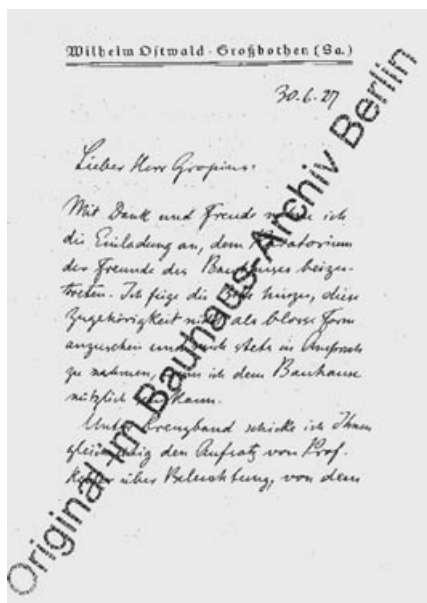 Wilhelm Ostwald · Großbothen (Sa.)
30.6.27
Lieber Herr Gropius:
Mit Dank und Freude nehme ich
die Einladung an, dem Kuratorium
der Freunde des Bauhauses beizu-
treten. Ich füge die Bitte hinzu, diese
Zugehörigkeit nicht als blosse Form
anzusehen und mich stets in Anspruch
zu nehmen, wenn ich dem Bauhause
nützlich sein kann.
Unter Kreuzband schicke ich Ihnen
gleichzeitig den Aufsatz von Prof.
über Beleuchtung, von dem
Original im Bauhaus-Archiv Berlin